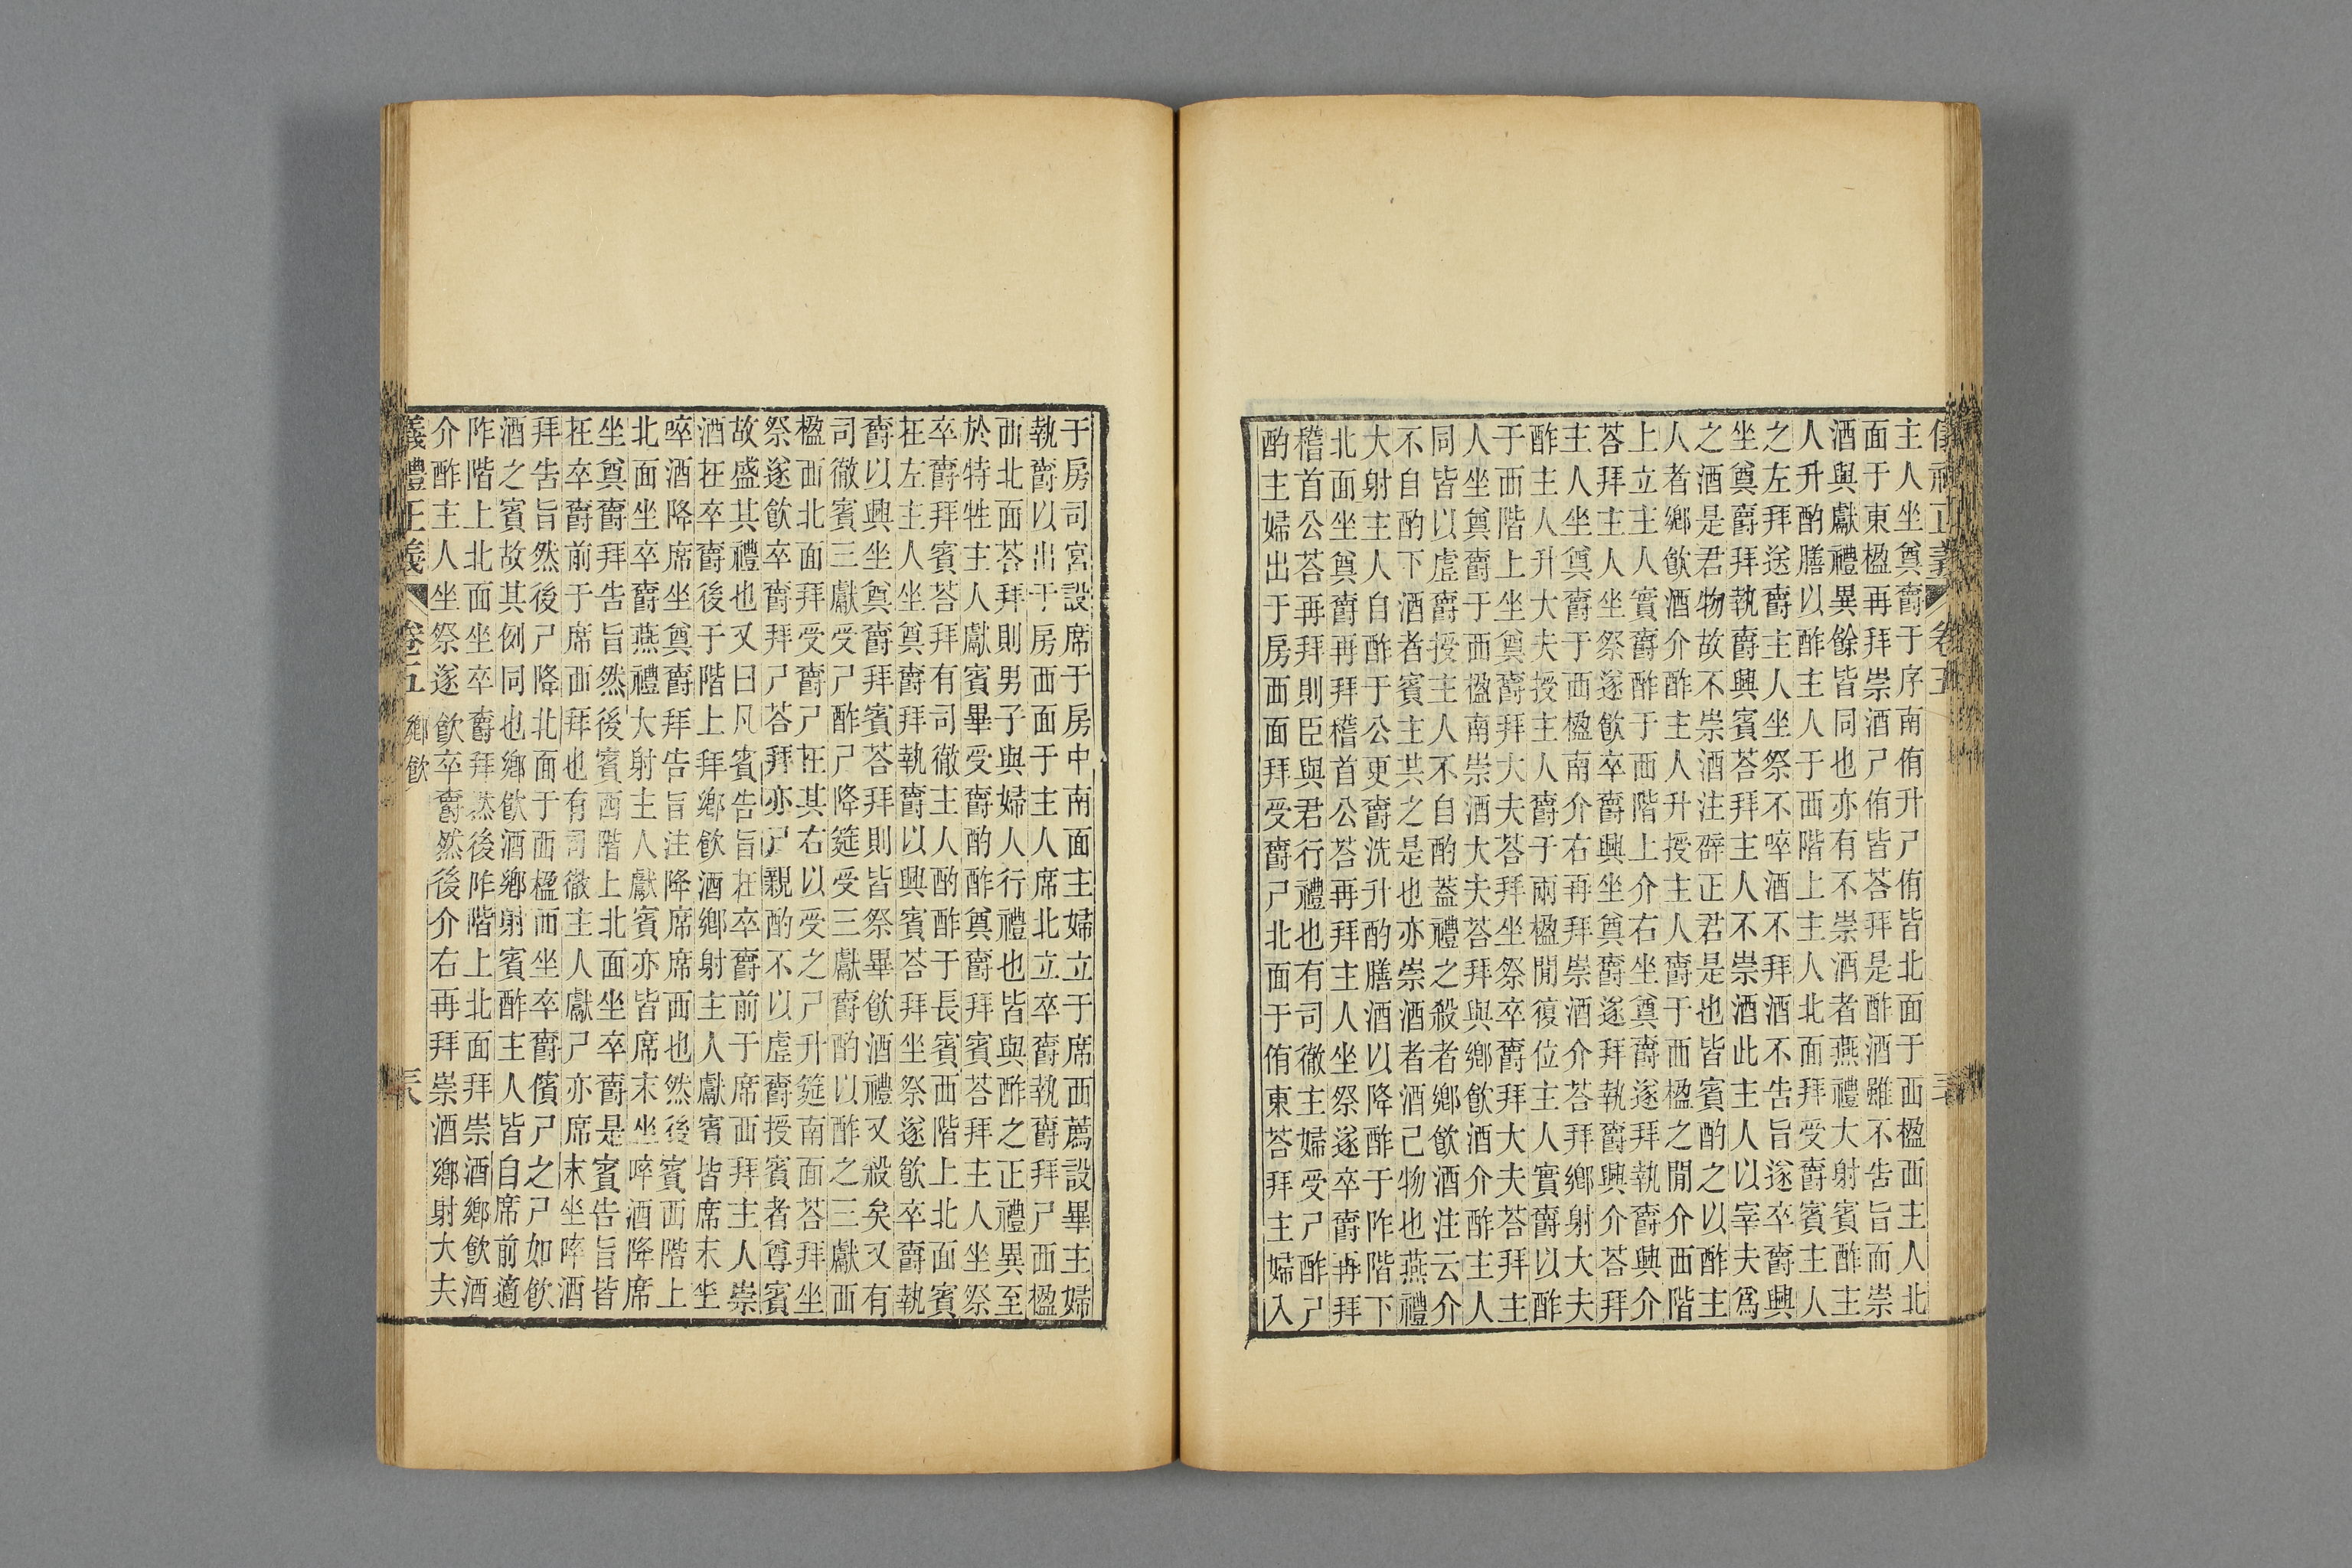 主人坐奠爵于序南侑升尸侑皆北面于西楹西主人北
面于東楹再拜崇酒尸侑皆荅拜是酢酒雖不告旨而崇
酒與獻禮異餘皆同也亦有不崇酒者燕禮大射賓酢主
人升酌膳以酢主人于西階上主人北面拜受爵賓主人
之左拜送爵主人坐祭不啐酒不拜酒不告旨遂卒爵興
坐奠爵拜執爵興賓荅拜主人不崇酒此主人以宰夫爲
之酒是君物故不崇酒注辟正君是也皆賓酌之以酢主
人者鄉飲酒介酢主人升授主人爵于西楹之閒介西階
上立主人實爵酢于西階上介右坐奠爵遂拜執爵興介
荅拜主人坐祭遂飲卒爵興坐奠爵遂拜執爵興介荅拜
主人坐奠爵于西楹南介右再拜崇酒介荅拜鄉射大夫
酢主人升大夫授主人爵于兩楹閒復位主人實爵以酢
于西階上坐奠爵拜大夫荅拜坐祭卒爵拜大夫荅拜主
人坐奠爵于西楹南崇酒大夫荅拜與鄉飲酒介酢主人
同皆以虛爵授主人不自酌蓋禮之殺者鄉飲酒注云介
不自酌下酒者賓主共之是也亦崇酒者酒己物也燕禮
大射主人自酢于公更爵洗升酌膳酒以降酢于阼階下
北面坐奠爵再拜稽首公荅再拜主人坐祭遂卒爵再拜
稽首公荅再拜則臣與君行禮也有司徹主婦受尸酢尸
酌主婦出于房西面拜受爵尸北面于侑東荅拜主婦入
于房司宮設席于房中南面主婦立于席西薦設畢主婦
執爵以出于房西面于主人席北立卒爵執爵拜尸西楹
西北面荅拜則男子與婦人行禮也皆與酢之正禮異至
於特牲主人獻賓畢受爵酌酢奠爵拜賓荅拜主人坐祭
卒爵拜賓荅拜有司徹主人酌酢于長賓西階上北面賓
在左主人坐奠爵拜執爵以興賓荅拜坐祭遂飲卒爵執
爵以興坐奠爵拜賓荅拜則皆祭畢飲酒禮又殺矣又有
司徹賓三獻受尸酢尸降筵受三獻爵酌以酢之三獻西
楹西北面拜受爵尸在其右以受之尸升筵南面荅拜坐
祭遂飲卒爵拜尸荅拜亦尸親酌不以虛爵授賓者尊賓
故盛其禮也又曰凡賓告旨在卒爵前于席西拜主人崇
酒在卒爵後于階上拜鄉飲酒鄉射主人獻賓皆席末坐
啐酒降席坐奠爵拜告旨注降席席西也然後賓西階上
北面坐卒爵燕禮大射主人獻賓亦皆席末坐啐酒降席
坐奠爵拜告旨然後賓西階上北面坐卒爵是賓告旨皆
在卒爵前于席西拜也有司徹主人獻尸亦席末坐啐酒
拜告旨然後尸降北面于西楹西坐卒爵儐尸之尸如飲
酒之賓故其例同也鄉飲酒鄉射賓酢主人皆自席前適
阼階上北面坐卒爵拜然後阼階上北面拜崇酒鄉飲酒
介酢主人坐祭遂飲卒爵然後介右再拜崇酒鄉射大夫
儀禮正義 卷五 鄉飲